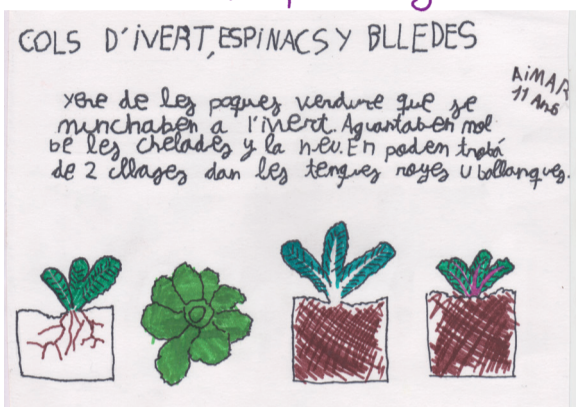 COLS D'IVERT, ESPINACS Y BLLEDES
AIMAR
11 Ans
yere de les poques verdure que se
minchaben a l'ivert. Aguantaben mol
be les chelades y la neu. En podem trobá
de 2 cllases dan les tengues royes u ballanques.